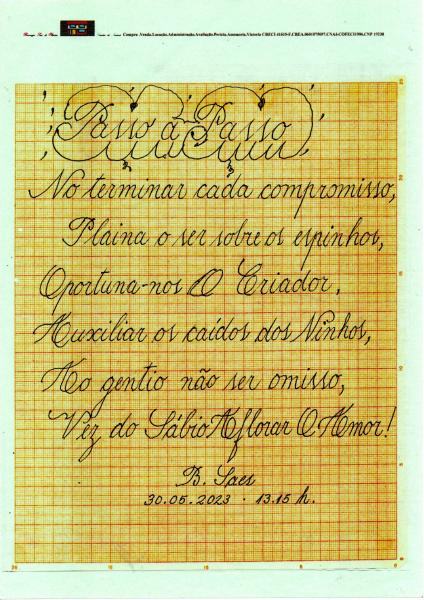 Compra ,Venda,Locação,Administração,Avaliação,Perícia,Assessoria,Vistoria
Passo a Passo
No terminar cada compromisso,
Plaina o ser sobre os espinhos,
Oportuna-nos O Criador,
Auxiliar os caídos dos Ninhos,
Ao gentio não ser omisso,
Vez do Sábio Aflorar O Amor!
B. Saes
30.05.2023 · 13.15 h.